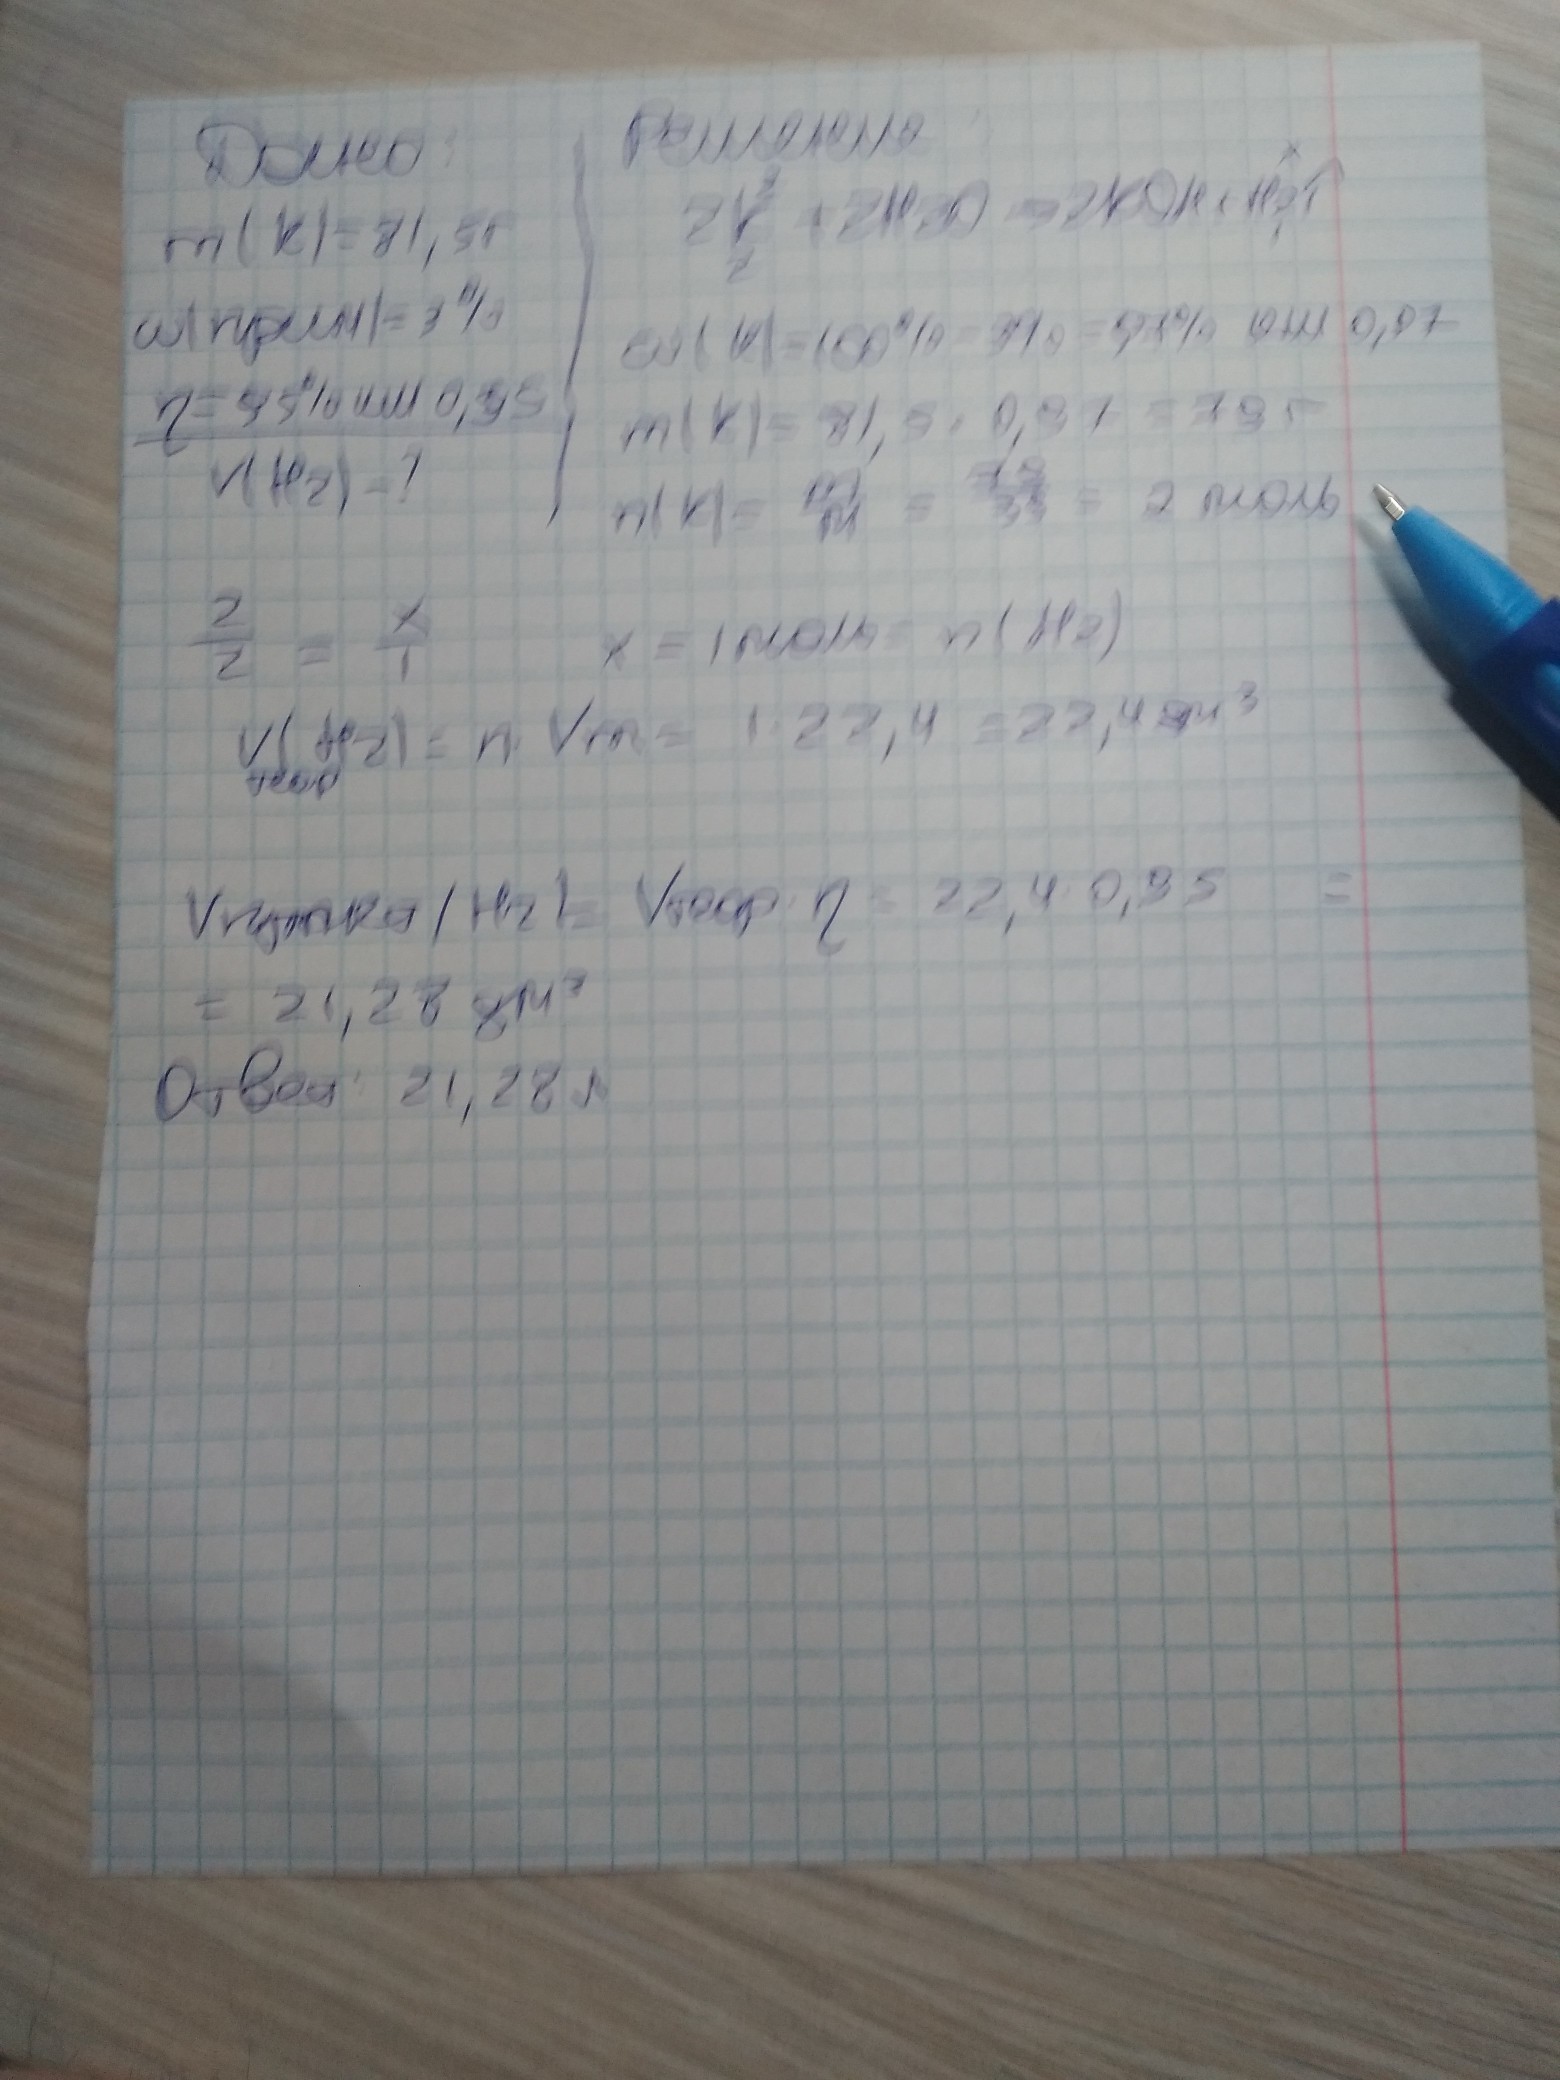 Дано:
m(K)=81,5г
w(прим)=3%
η=95% или 0,95
V(H2)-?
Решение:
2K + 2H2O = 2KOH + H2↑
2 x
2 1
w(K)=100%-3%=97% или 0,97
m(K)=81,5·0,97=79г
n(K)= m/M = 79/39 = 2 моль
2/2 = x/1 x = 1 моль = n(H2)
Vтеор(H2)= n·Vm= 1·22,4 =22,4 дм³
Vпрактика(H2)= Vтеор·η = 22,4·0,95 =
= 21,28 дм³
Ответ: 21,28 л